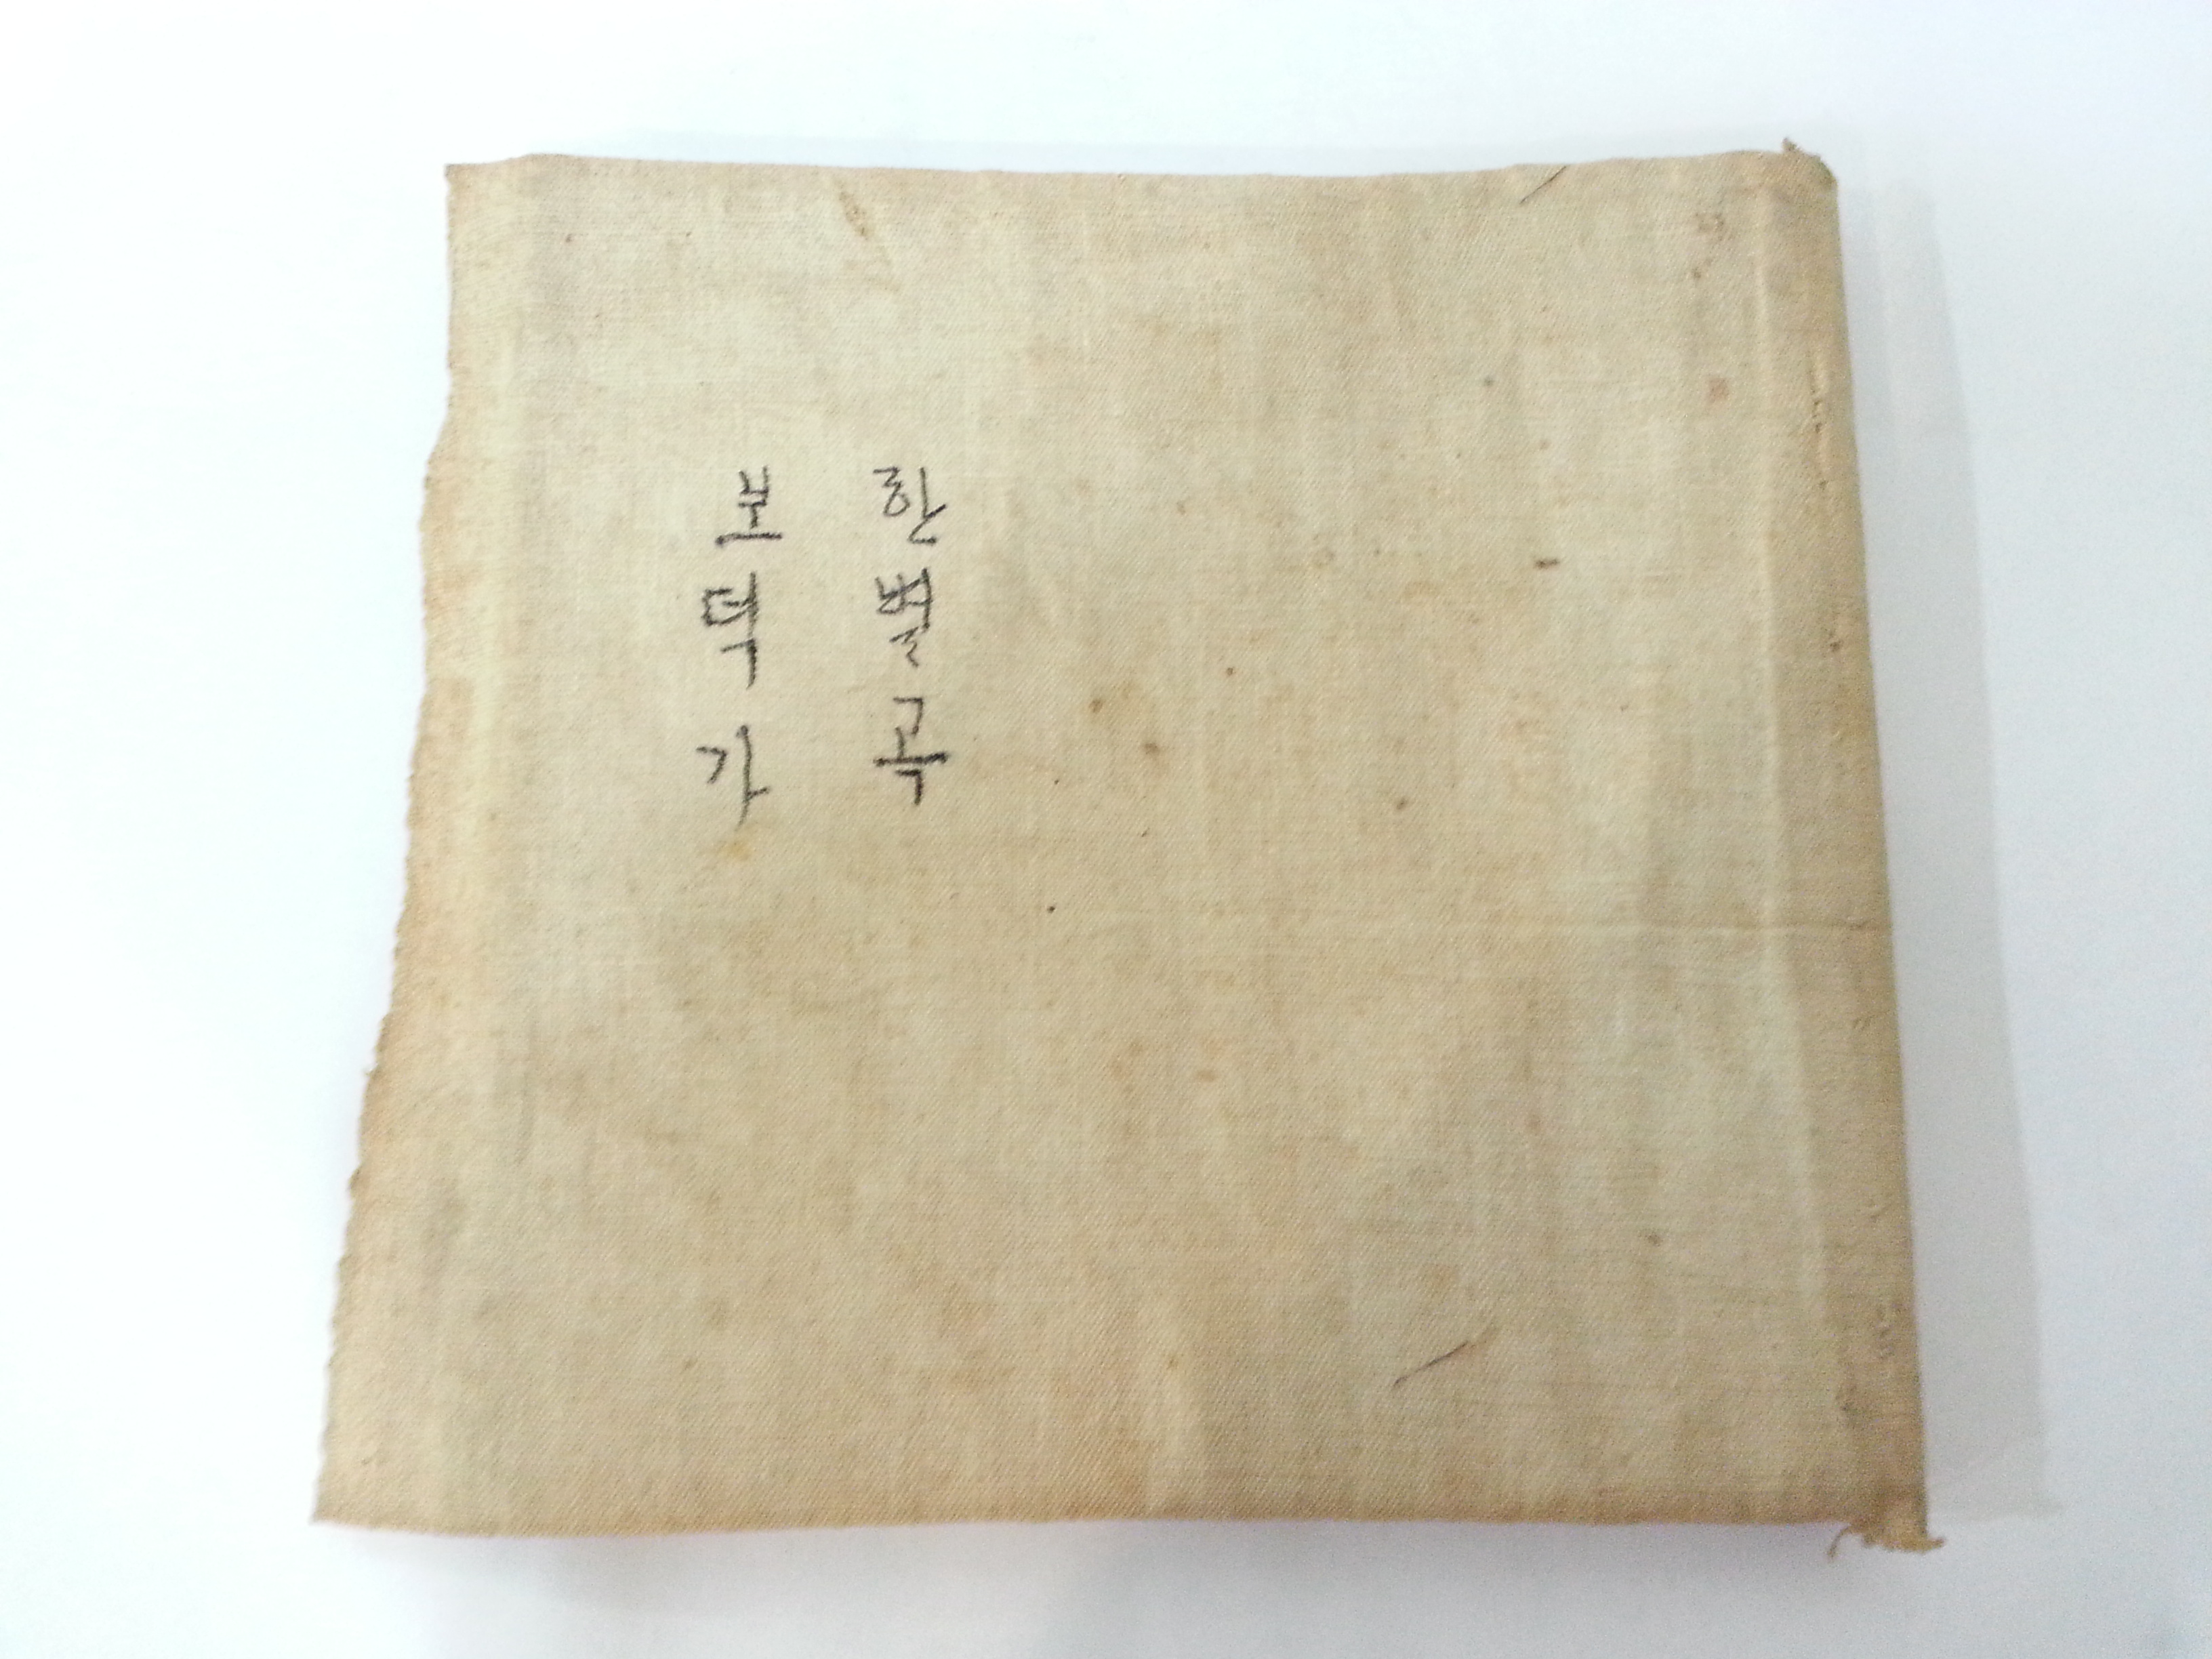 한별곡
보덕가